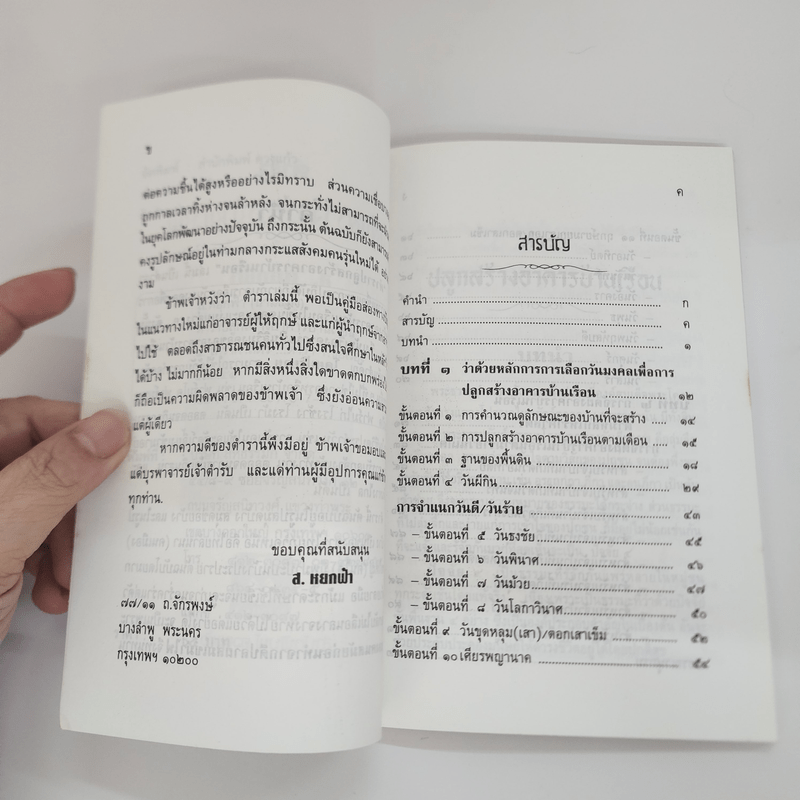 ข
ต่อความขึ้นได้สูงหรืออย่างไรมิทราบ ส่วนความเชื่อ
ถูกกาลเวลาทิ้งห่างจนล้าหลัง จนกระทั่งไม่สามารถที่จะ
ในยุคโลกพัฒนาอย่างปัจจุบัน ถึงกระนั้น ต้นฉบับก็ยังสามารถ
คงรูปลักษณ์อยู่ในท่ามกลางกระแสสังคมคนรุ่นใหม่ได้
งาม
ข้าพเจ้าหวังว่า ตำราเล่มนี้ พอเป็นคู่มือส่องทาง
ในแนวทางใหม่แก่อาจารย์ผู้ให้ฤกษ์ และแก่ผู้นำฤกษ์
ไปใช้ ตลอดถึงสาธารณชนคนทั่วไปซึ่งสนใจศึกษาใน
ได้บ้าง ไม่มากก็น้อย หากมีสิ่งหนึ่งสิ่งใดขาดตกบกพร่อง
ก็ถือเป็นความผิดพลาดของข้าพเจ้า ซึ่งยังอ่อนความ
แต่ผู้เดียว
หากความดีของตำรานี้พึงมีอยู่ ข้าพเจ้าขอมอบ
แด่บุรพาจารย์เจ้าตำรับ และแด่ท่านผู้มีอุปการคุณแก่ข้า
ทุกท่าน.
ขอบคุณที่สนับสนุน
ส. หยกฟ้า
๗๗/๑๑ ถ.จักรพงษ์
บางลำพู พระนคร
กรุงเทพฯ ๑๐๒๐๐
ค
สารบัญ
คำนำ ก
สารบัญ ค
บทนำ ๑
บทที่ ๑ ว่าด้วยหลักการการเลือกวันมงคลเพื่อการ
ปลูกสร้างอาคารบ้านเรือน ๑๒
ขั้นตอนที่ ๑ การคำนวณดูลักษณะของบ้านที่จะสร้าง ๑๔
ขั้นตอนที่ ๒ การปลูกสร้างอาคารบ้านเรือนตามเดือน ๑๕
ขั้นตอนที่ ๓ ฐานของพื้นดิน ๑๘
ขั้นตอนที่ ๔ วันผีกิน ๒๙
การจำแนกวันดี/วันร้าย ๔๓
– ขั้นตอนที่ ๕ วันธงชัย ๔๕
– ขั้นตอนที่ ๖ วันพินาศ ๔๖
– ขั้นตอนที่ ๗ วันม้วย ๔๗
– ขั้นตอนที่ ๘ วันโลกาวินาศ ๕๐
ขั้นตอนที่ ๙ วันขุดหลุม(เสา)/ตอกเสาเข็ม ๕๒
ขั้นตอนที่ ๑๐ เศียรพญานาค ๕๔